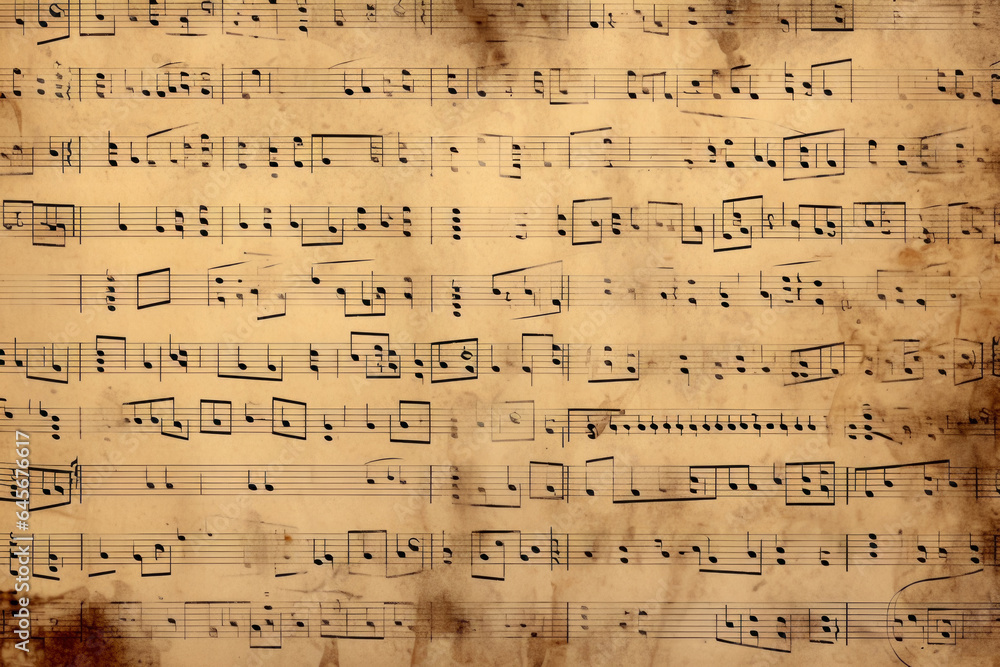 Adobe Stock | #645676617